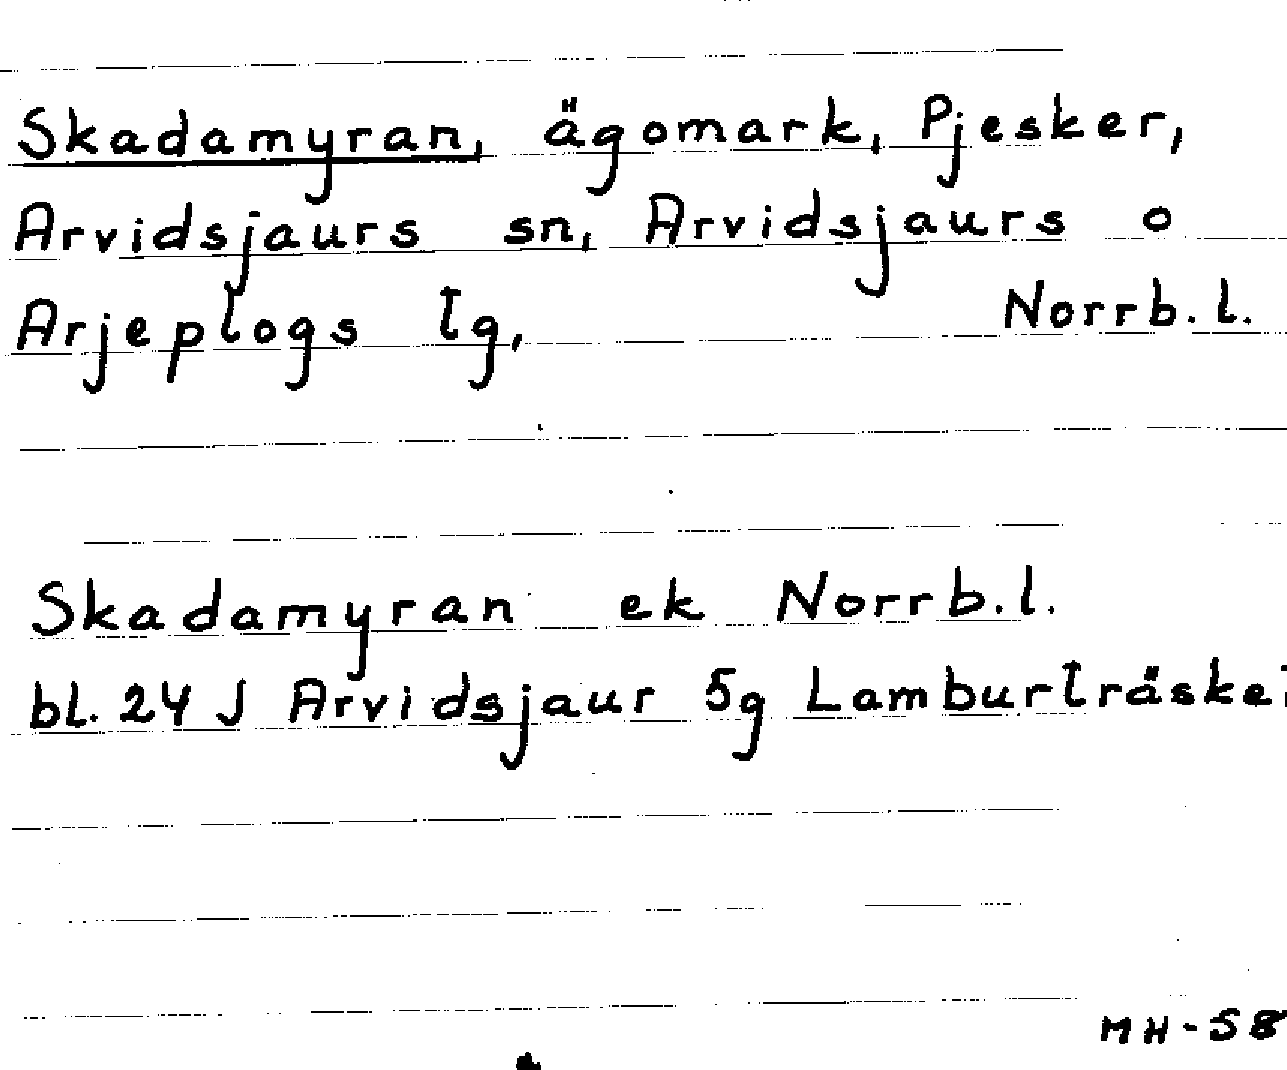 Skadamyran, ägomark, Pjesker,
Arvidsjaurs sn, Arvidsjaurs o
Arjeplogs lg, Norrb.l.
Skadamyran ek Norrb.l.
bl. 24 J Arvidsjaur 5g Lamburträsket
MH-58